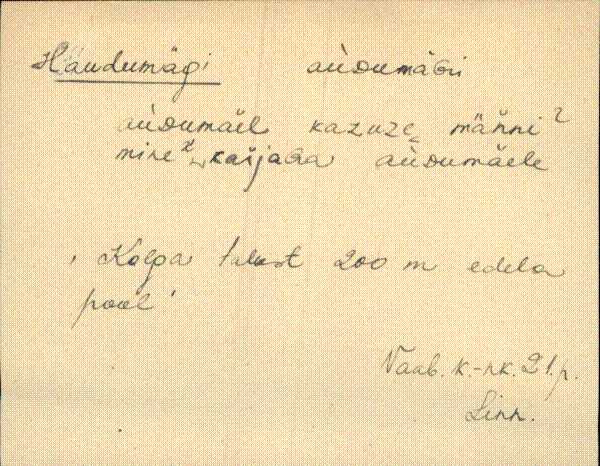 Haudumägi aùdumäGi
aùdumäel kazuze männi
mine kaŕjaGa aùdumäele
, Kolga talust 200 m edela
pool'
Vaab. k.-nk. 21. p.
Linn.